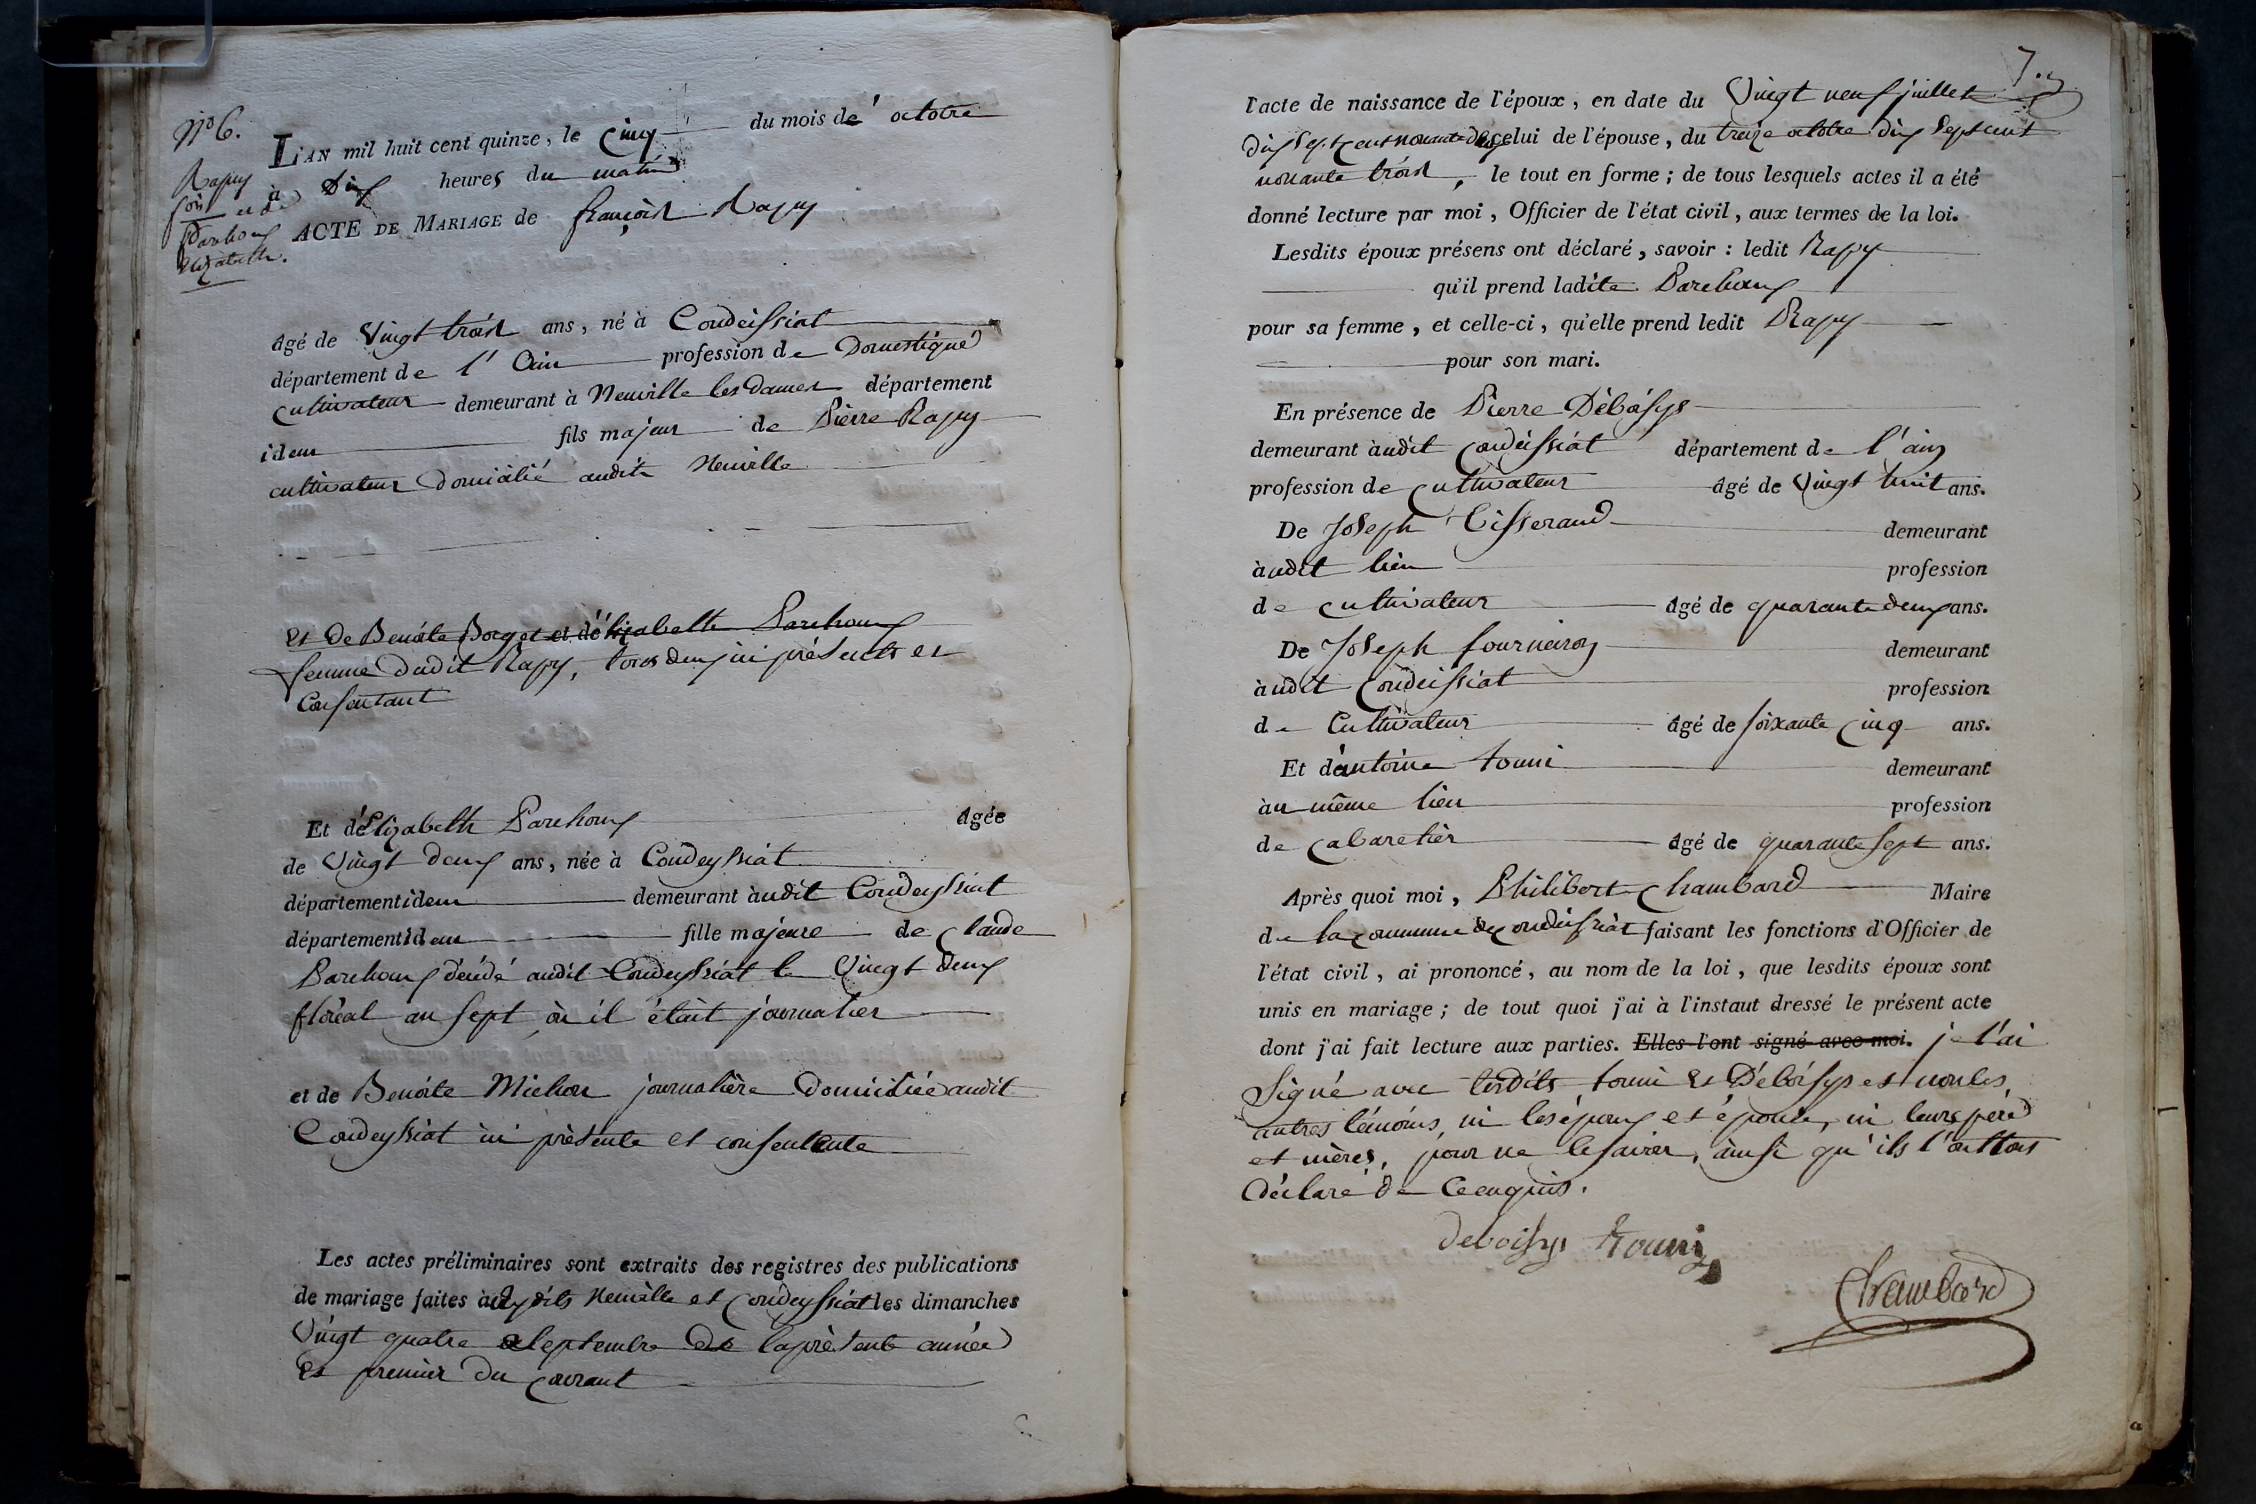 N° 6.
Rapy
fois et de
Barchoux
Elizabeth.
L'AN mil huit cent quinze, le cinq du mois de octobre
à Dix heures du matin
ACTE DE MARIAGE de françois Rapy
âgé de Vingt trois ans, né à Condeissiat
département de l'Ain profession de Domestique
cultivateur demeurant à Neuville les Dames département
idem fils majeur de Pierre Rapy
cultivateur Domicilié audit Neuville
et de Benoite Borget et d'élizabeth Barchoux
femme dudit Rapy, tous deux ici présents et
Consentant
Et d'Elizabeth Barchoux âgée
de Vingt deux ans, née à Condeyssiat
département idem demeurant audit Condeyssiat
département idem fille majeure de Claude
Barchoux décédé audit Condeyssiat le Vingt deux
floréal an sept où il était journalier
et de Benoite Michon journalière Domiciliée audit
Condeyssiat ici présente et consentente
Les actes préliminaires sont extraits des registres des publications
de mariage faites à dits Neuville et Condeyssiat les dimanches
Vingt quatre septembre de la présente année
et premier du courant
7.
l'acte de naissance de l'époux, en date du Vingt neuf juillet
dix sept cent nonante deux celui de l'épouse, du treize octobre dix sept cent
nonante trois, le tout en forme; de tous lesquels actes il a été
donné lecture par moi, Officier de l'état civil, aux termes de la loi.
Lesdits époux présens ont déclaré, savoir : ledit Rapy
qu'il prend ladite Barchoux
pour sa femme, et celle-ci, qu'elle prend ledit Rapy
pour son mari.
En présence de Pierre Déboisys
demeurant audit Condeissiat département de l'ain
profession de cultivateur âgé de Vingt huit ans.
De Joseph Tisserand demeurant
audit lieu profession
de cultivateur âgé de quarante deux ans.
De Joseph fourneiron demeurant
audit Condeissiat profession
de Cultivateur âgé de soixante cinq ans.
Et d'antoine touni demeurant
au même lieu profession
de cabaretier âgé de quarante sept ans.
Après quoi moi, Philibert Chambard Maire
de la commune de condeissiat faisant les fonctions d'Officier de
l'état civil, ai prononcé, au nom de la loi, que lesdits époux sont
unis en mariage; de tout quoi j'ai à l'instant dressé le présent acte
dont j'ai fait lecture aux parties. Elles l'ont signé avec moi. je l'ai
Signé avec lesdits touni et Déboisys et non les
autres témoins, ni les époux et épouse, ni leurs père
et mères, pour ne le savoir, ainsi qu'ils l'ont tous
déclaré de ce enquis.
deboisys touni
Chambard